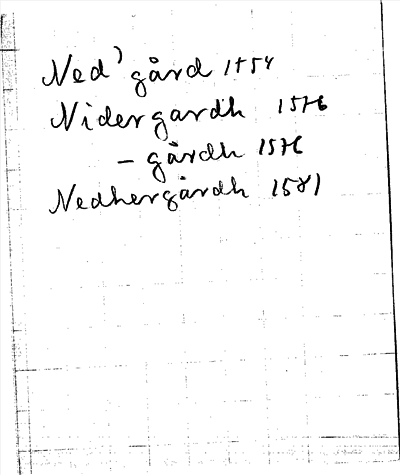 Ned' gård 1554
Nidergardh 1576
– gårdh 1576
Nedhergårdh 1581